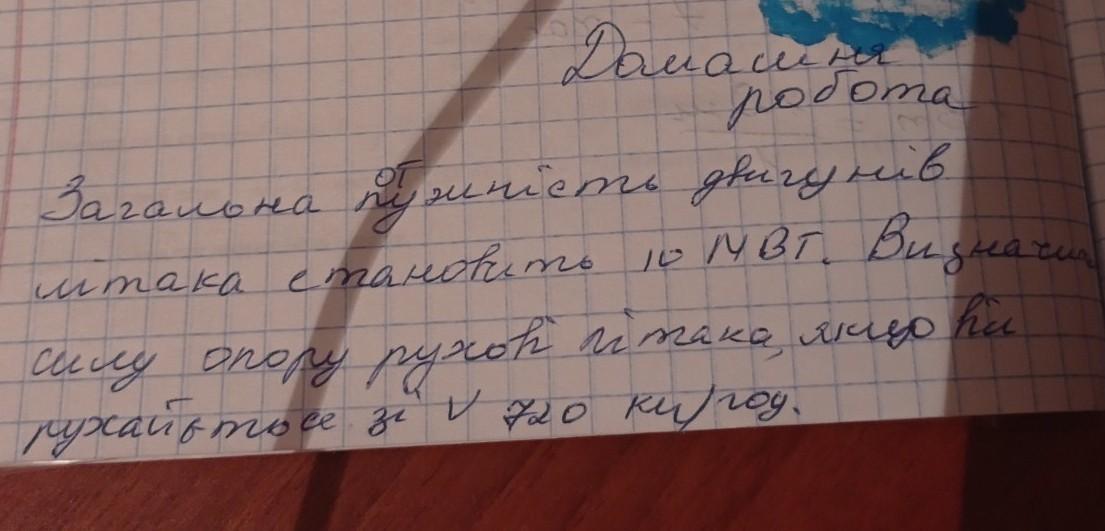 Домашня
робота
Загальна потужність двигунів
літака становить 10 МВт. Визначи
силу опору рухові літака, якщо він
рухайеться зі V 720 км/год.